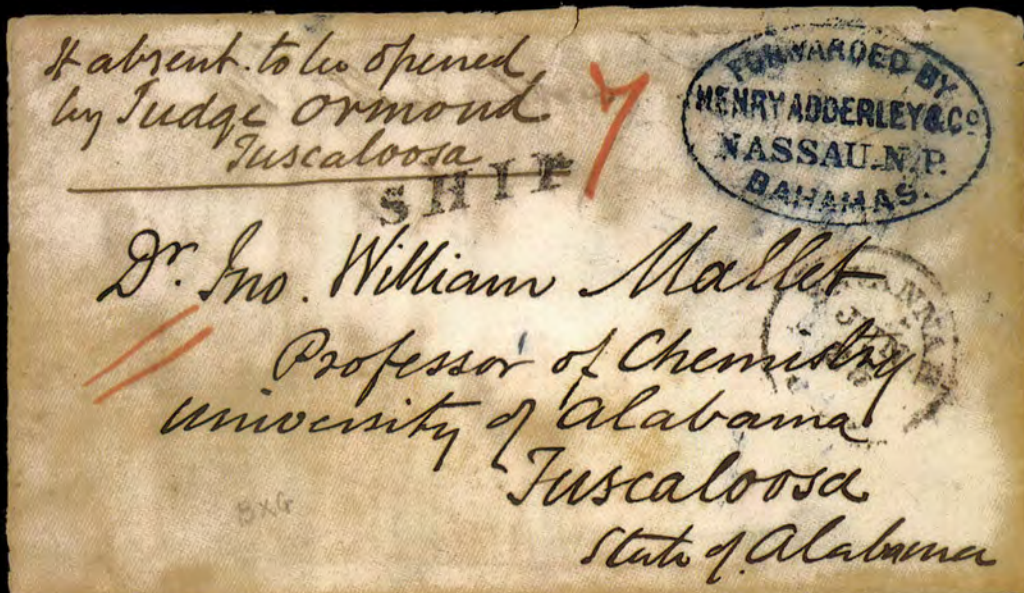 If absent to be opened
by Judge Ormond
Tuscaloosa
7
FORWARDED BY
HENRY ADDERLEY & Co
NASSAU.N.P.
BAHAMAS.
SHIP
Dr. Jno. William Mallet
Professor of Chemistry
University of Alabama
Tuscaloosa
State of Alabama
BXG